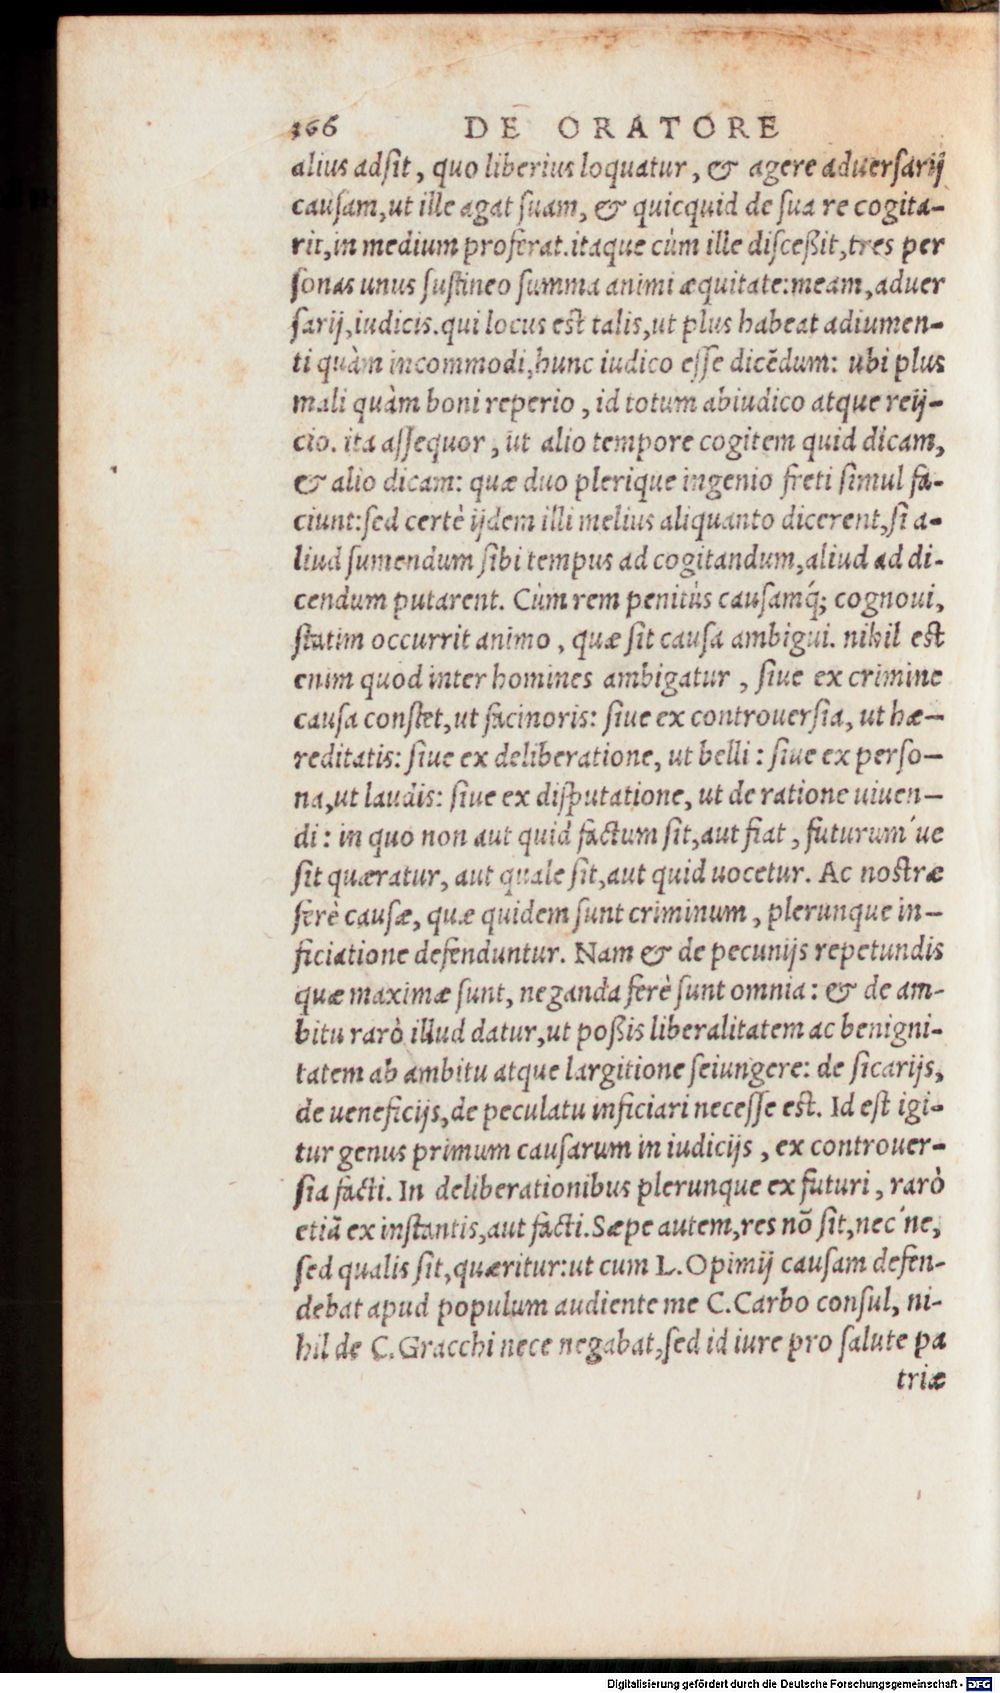 166 DE ORATORE
alius adſit, quo liberius loquatur, & agere aduerſarij
cauſam, ut ille agat ſuam, & quicquid de ſua re cogita-
rit, in medium proferat. itaque cùm ille diſceßit, tres per
ſonas unus ſuſtineo ſumma animi æquitate: meam, aduer
ſarij, iudicis. qui locus est talis, ut plus habeat adiumen-
ti quàm incommodi, hunc iudico eſſe dicẽdum: ubi plus
mali quàm boni reperio, id totum abiudico atque reij-
cio. ita aſſequor, ut alio tempore cogitem quid dicam,
& alio dicam: quæ duo plerique ingenio freti ſimul fa-
ciunt: ſed certè ijdem illi melius aliquanto dicerent, ſi a-
liud ſumendum ſibi tempus ad cogitandum, aliud ad di-
cendum putarent. Cùm rem penitùs cauſamq́; cognoui,
ſtatim occurrit animo, quæ ſit cauſa ambigui. nihil est
enim quod inter homines ambigatur, ſiue ex crimine
cauſa conſtet, ut facinoris: ſiue ex controuerſia, ut hæ-
reditatis: ſiue ex deliberatione, ut belli: ſiue ex perſo-
na, ut laudis: ſiue ex diſputatione, ut de ratione uiuen-
di: in quo non aut quid factum ſit, aut fiat, futurum ́ue
ſit quæratur, aut quale ſit, aut quid uocetur. Ac nostræ
ferè cauſæ, quæ quidem ſunt criminum, plerunque in-
ficiatione defenduntur. Nam & de pecunijs repetundis
quæ maximæ ſunt, neganda ferè ſunt omnia: & de am-
bitu rarò illud datur, ut poßis liberalitatem ac benigni-
tatem ab ambitu atque largitione ſeiungere: de ſicarijs,
de ueneficijs, de peculatu inficiari neceſſe est. Id eſt igi-
tur genus primum cauſarum in iudicijs, ex controuer-
ſia facti. In deliberationibus plerunque ex futuri, rarò
etiã ex inſtantis, aut facti. Sæpe autem, res nõ ſit, nec ́ne,
ſed qualis ſit, quæritur: ut cum L. Opimij cauſam defen-
debat apud populum audiente me C. Carbo conſul, ni-
hil de C. Gracchi nece negabat, ſed id iure pro ſalute pa
triæ
Digitalisierung gefördert durch die Deutsche Forschungsgemeinschaft - DFG